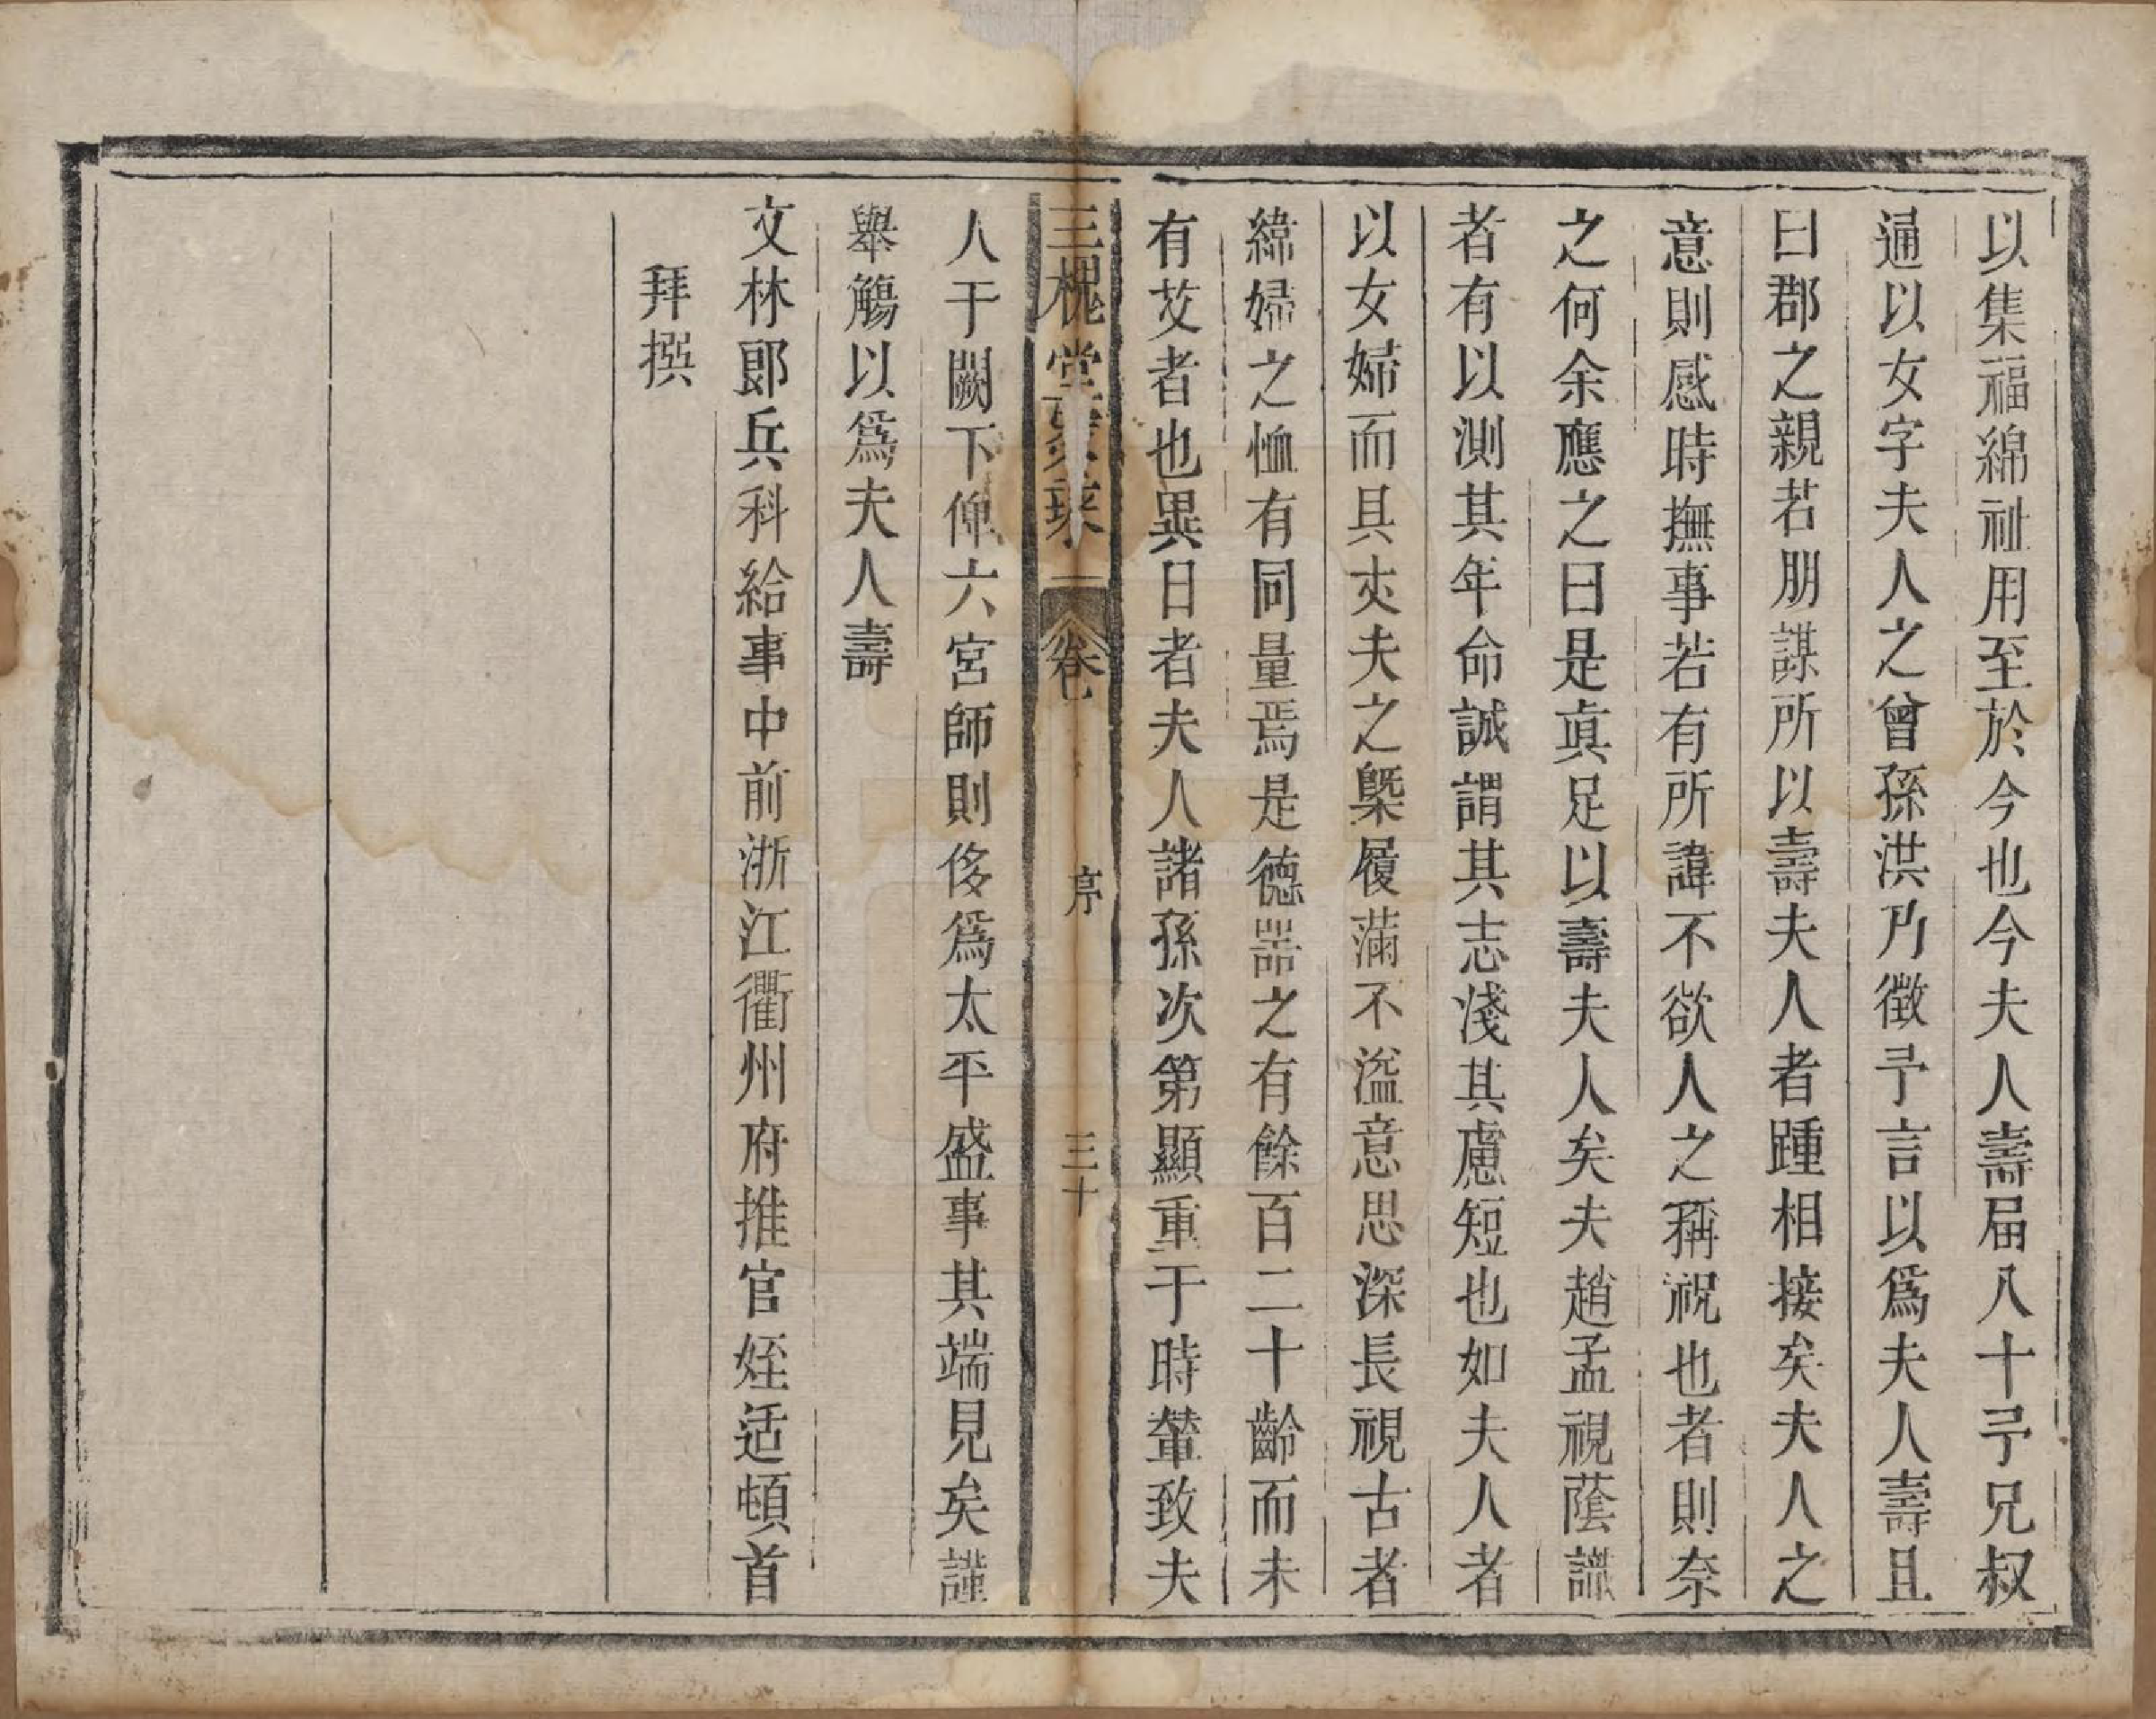 以集福綿祉用至於今也今夫人壽屆八十予兄叔
通以女字夫人之曾孫洪乃徵予言以爲夫人壽且
曰郡之親若朋謀所以壽夫人者踵相接矣夫人之
意則感時撫事若有所諱不欲人之稱祝也者則奈
之何余應之曰是真足以壽夫人矣夫趙孟視蔭識
者有以測其年命誠謂其志淺其慮短也如夫人者
以女婦而具丈夫之槩履滿不溢意思深長視古者
緯婦之恤有同量焉是德器之有餘百二十齡而未
有艾者也異日者夫人諸孫次第顯重于時輦致夫
三槐堂 卷 序 三十
人于闕下伸六宮師則侈爲太平盛事其端見矣謹
舉觴以爲夫人壽
文林郎兵科給事中前浙江衢州府推官姪适頓首
拜撰